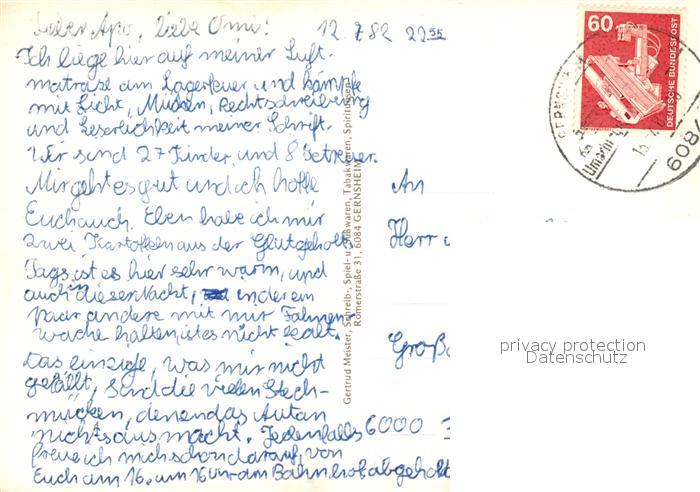 Lieber Apo, liebe Omi! 12.7.82 22⁵⁵
Ich liege hier auf meiner Luft-
matraze am Lagerfeuer und kämpfe
mit Licht, Mücken, Rechtschreibung
und Leserlichkeit meiner Schrift.
Wir sind 27 Kinder, und 8 Betreuer.
Mir geht es gut und ich hoffe
Euch auch. Eben habe ich mir
zwei Kartoffeln aus der Glut geholt.
Tags ist es hier sehr warm, und
auch in dieser Nacht, in der ein
paar andere mit mir Fahnen-
wache halten, ist es nicht kalt.
Das einzige, was mir nicht
gefällt, sind die vielen Stech-
mücken, denen das Autan
nichts ausmacht. Jedenfalls
freue ich mich schon darauf, von
Euch am 16. um 16 Uhr am Bahnhof abgeholt
Gertrud Meister, Schreib-, Spiel- u. Süßwaren, Tabakwaren, Spirituosen
Römerstraße 31, 6084 GERNSHEIM
60
DEUTSCHE BUNDESPOST
GERNSHEIM
6084
An
Herr
Groß
6000
privacy protection
Datenschutz